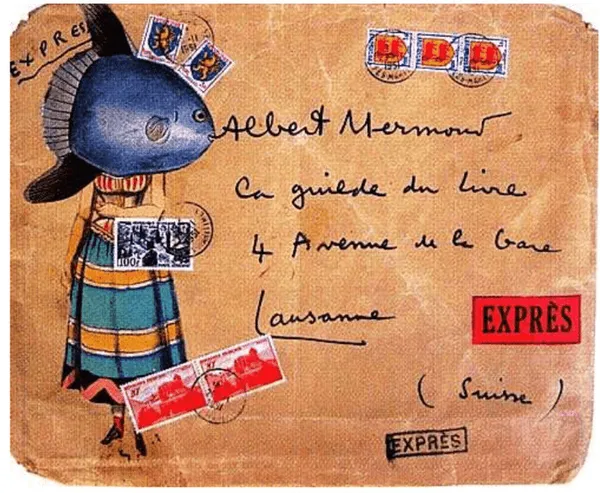 EXPRES
Albert Mermoud
La guilde du Livre
4 Avenue de la Gare
Lausanne
EXPRÈS
(Suisse)
EXPRÈS
100F